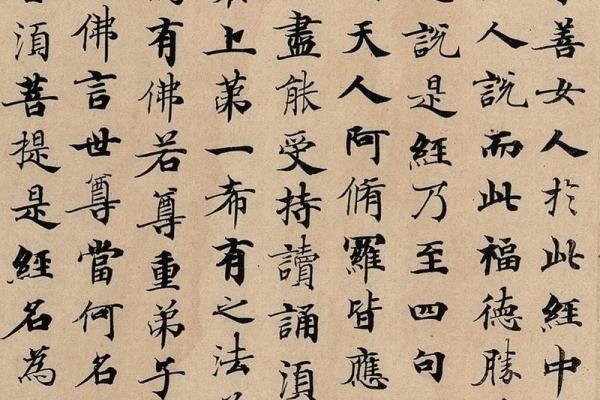 善女人於此經中
人說而此福德勝
說是經乃至四句
天人阿脩羅皆應
盡能受持讀誦湏
上苐一希有之法
有佛若尊重弟子
佛言世尊當何名
湏菩提是經名為